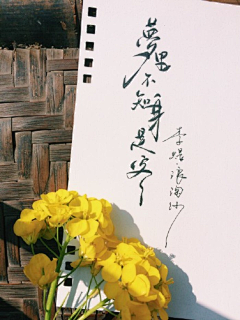 梦里不知身是客
李煜浪淘沙